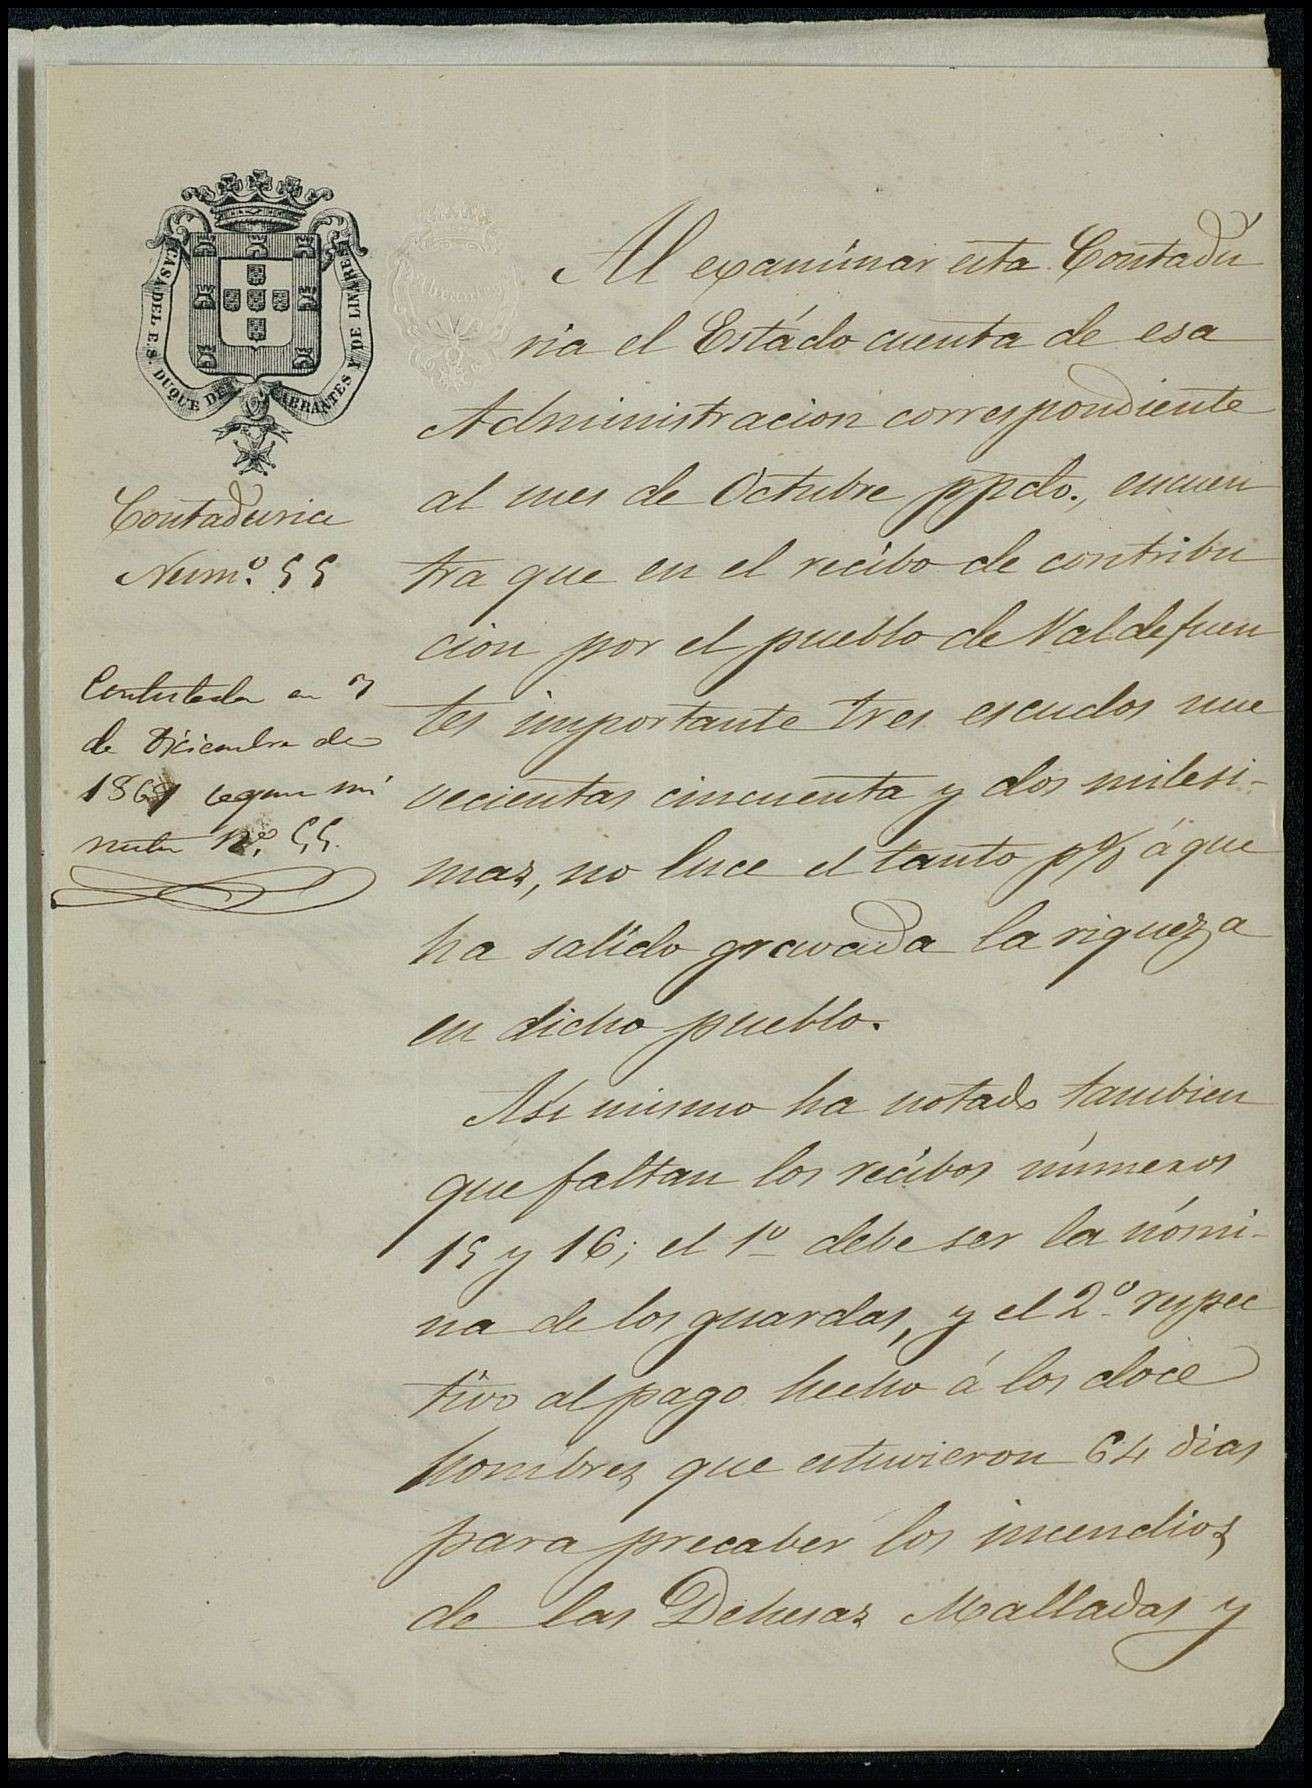 CASA DEL E. S. DUQUE DE ABRANTES Y DE LINARES
Contaduria
Núm.º 55
Contestada en 7
de Diciembre de
1867 segun mi
nuta Nº. 55.
Al examinar esta Contadu
ria el Estádo cuenta de esa
Administracion correspondiente
al mes de Octubre ppdo., encuen
tra que en el recibo de contribu
cion por el pueblo de Valdefuen
tes importante tres escudos nue
vecientas cincuenta y dos milesi-
mas, no luce el tanto p% á que
ha salido gravada la riqueza
en dicho pueblo.
Asi mismo ha notado tambien
que faltan los recibos números
15 y 16; el 1º debe ser la nómi-
na de los guardas, y el 2º. respec
tivo al pago hecho á los doce
hombres que estuvieron 64 dias
para precaber los incendios
de las Dehesas Malladas y